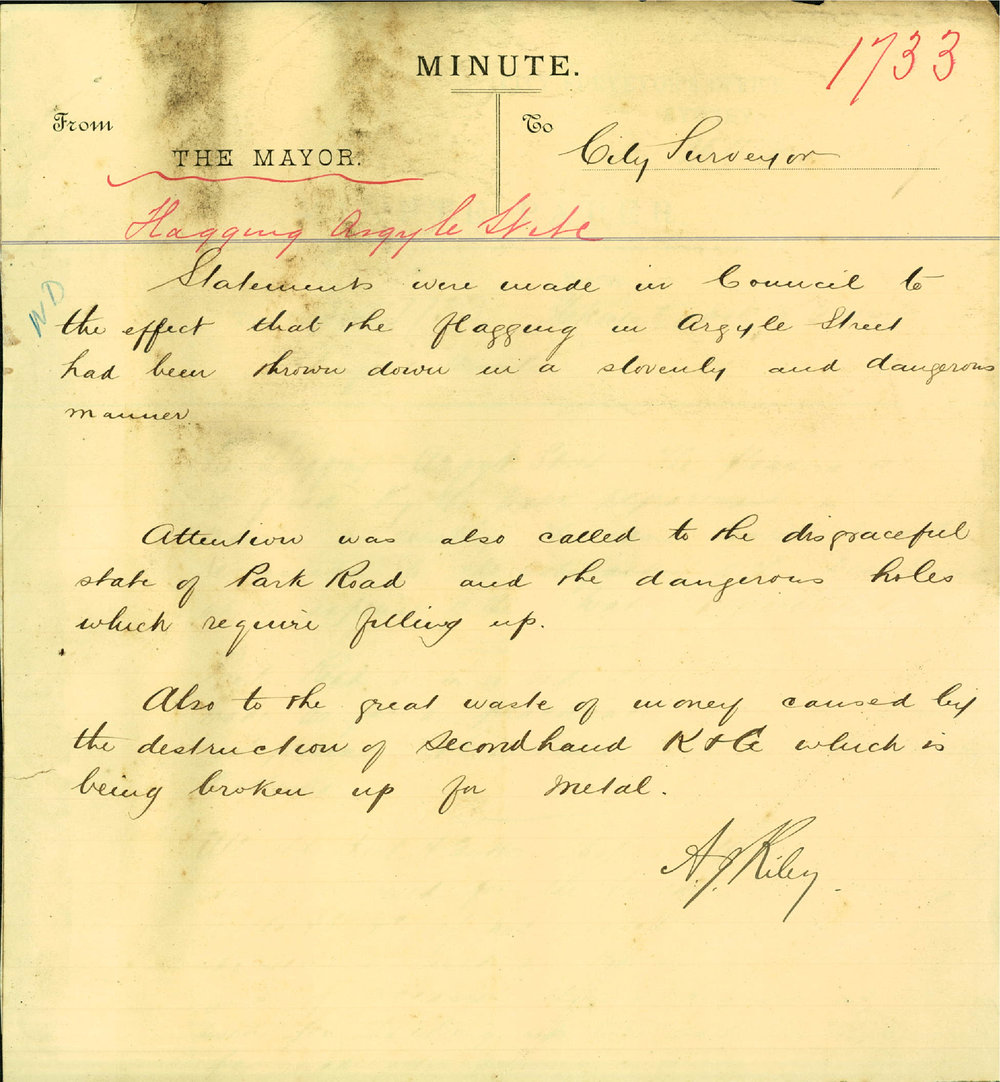 1733
MINUTE.
From
To
THE MAYOR.
City Surveyor
Flagging Argyle Street
ND
Statements were made in Council to
the effect that the flagging in Argyle Street
had been thrown down in a slovenly and dangerous
manner.
Attention was also called to the disgraceful
state of Park Road and the dangerous holes
which require filling up.
Also to the great waste of money caused by
the destruction of secondhand K & G which is
being broken up for metal.
A. J. Riley.